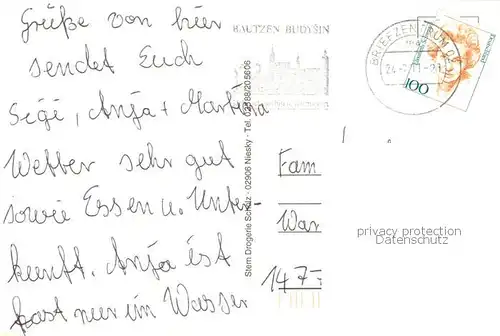 Grüße von hier
sendet Euch
Sigi, Anja + Martina
Wetter sehr gut
sowie Essen u. Unter-
kunft. Anja ist
fast nur im Wasser
BAUTZEN BUDYŠIN
Stern Drogerie Scholz - 02906 Niesky - Tel. 03588/205606
BRIEFZENTRUM
24.-7.
100
Deutschland
Fam
War
147-
privacy protection
Datenschutz